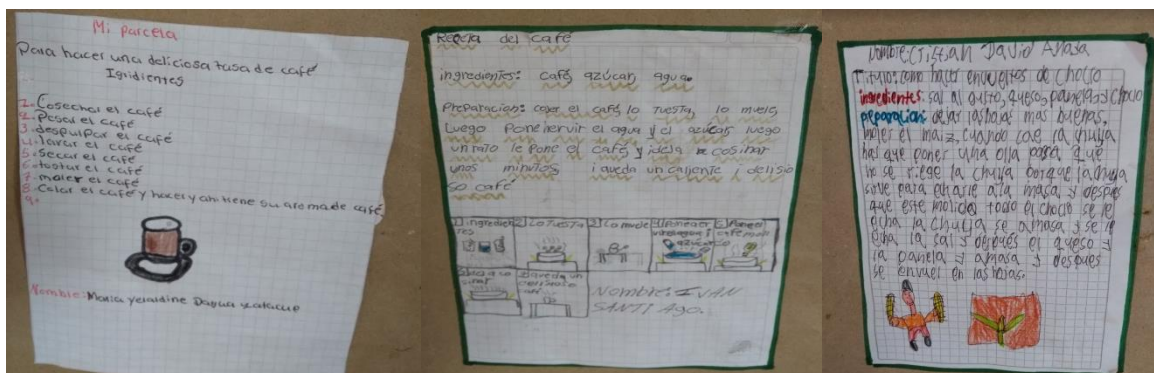 Mi parcela
Para hacer una deliciosa tasa de café
Igridientes
1. Cosechar el café
2. Pesar el café
3. despulpar el café
4. lavar el café
5. Secar el café
6. tostar el café
7. moler el café
8. Colar el café y hacer y ahi tiene su aroma de café.
9.
Nombre: Maria yeraldine Dagua
Receta del café
ingredientes: café azúcar agua.
Preparación: cojer el café, lo tuesta, lo muele,
Luego Pone hervir el agua y el azúcar luego
un rato le pone el café y idela cosinar
unos minutos i queda un caliente i delisio
so café
1) ingredien
tes
2) Lo tuesta
3) Lo muele
café
Nombre: IVAN
SANTI Ago.
Nombre: Cristian David
Titulo: como hacer envueltos de choclo
ingredientes: sal al gusto, queso, panela, y choclo
peparacion: dejar las hojas mas buenas,
moler el maiz, cuando cae la chulja
hay que poner una olla para que
no se riege la chulja porque la chulja
sirve para echarle a la masa, y despues
que este molido todo el choclo se le
echa la chulja se amasa y se le
echa la sal y después el queso y
la panela y amasa y despues
se envuel en las hojas.